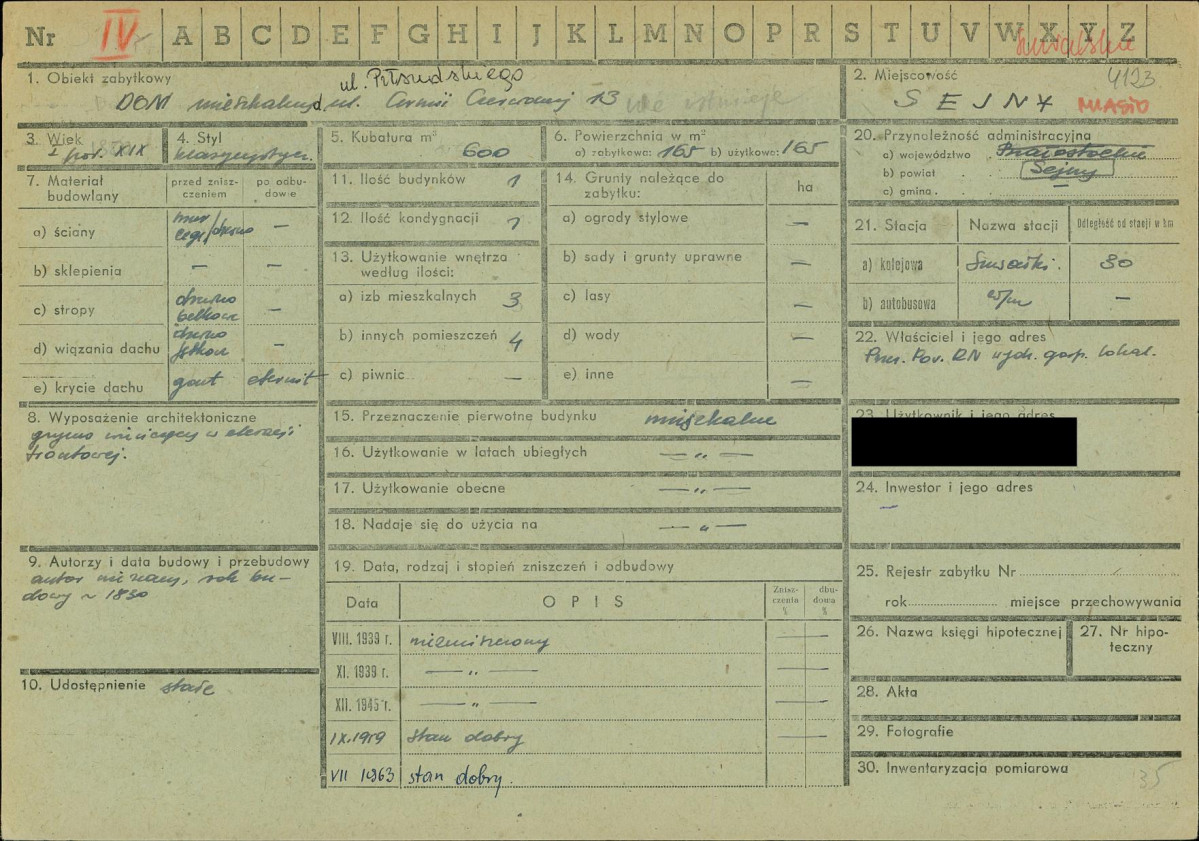 Nr IV A B C D E F G H I J K L M N O P R S T U V W X Y Z
suwalskie
4123
1. Obiekt zabytkowy ul. Piłsudskiego
DOM mieszkalny, ul. Armii Czerwonej 13 nie istnieje
2. Miejscowość
SEJNY MIASTO
3. Wiek
I poł. XIX
4. Styl
klasycystycz.
5. Kubatura m³
600
6. Powierzchnia w m²
a) zabytkowa: 165 b) użytkowa: 165
7. Materiał budowlany
przed zniszczeniem
po odbudowie
a) ściany mur cegl/drewno —
b) sklepienia — —
c) stropy drewno belkow —
d) wiązania dachu drewno jętkow —
e) krycie dachu gont eternit
8. Wyposażenie architektoniczne
gzyms wieńczący w elewacji
frontowej.
9. Autorzy i data budowy i przebudowy
autor nieznany, rok bu-
dowy ~ 1830
10. Udostępnienie stałe
11. Ilość budynków 1
12. Ilość kondygnacji 1
13. Użytkowanie wnętrza
według ilości:
a) izb mieszkalnych 3
b) innych pomieszczeń 4
c) piwnic —
14. Grunty należące do
zabytku:
ha
a) ogrody stylowe —
b) sady i grunty uprawne —
c) lasy —
d) wody —
e) inne —
15. Przeznaczenie pierwotne budynku mieszkalne
16. Użytkowanie w latach ubiegłych — „ —
17. Użytkowanie obecne — „ —
18. Nadaje się do użycia na — „ —
19. Data, rodzaj i stopień zniszczeń i odbudowy
Data OPIS Zniszczenia % dbudowa %
VIII. 1939 r. niezniszczony —
XI. 1939 r. — „ — —
XII. 1945 r. — „ — —
IX.1959 stan dobry —
VII 1963 stan dobry. —
20. Przynależność administracyjna
a) województwo Białostockie
b) powiat Sejny
c) gmina
21. Stacja Nazwa stacji Odległość od stacji w km
a) kolejowa Suwałki 30
b) autobusowa w/m —
22. Właściciel i jego adres
Prez. Pow. RN wydz. gosp. lokal.
23. Użytkownik i jego adres
24. Inwestor i jego adres
—
25. Rejestr zabytku Nr
rok miejsce przechowywania
26. Nazwa księgi hipotecznej
27. Nr hipoteczny
28. Akta
29. Fotografie
30. Inwentaryzacja pomiarowa
35